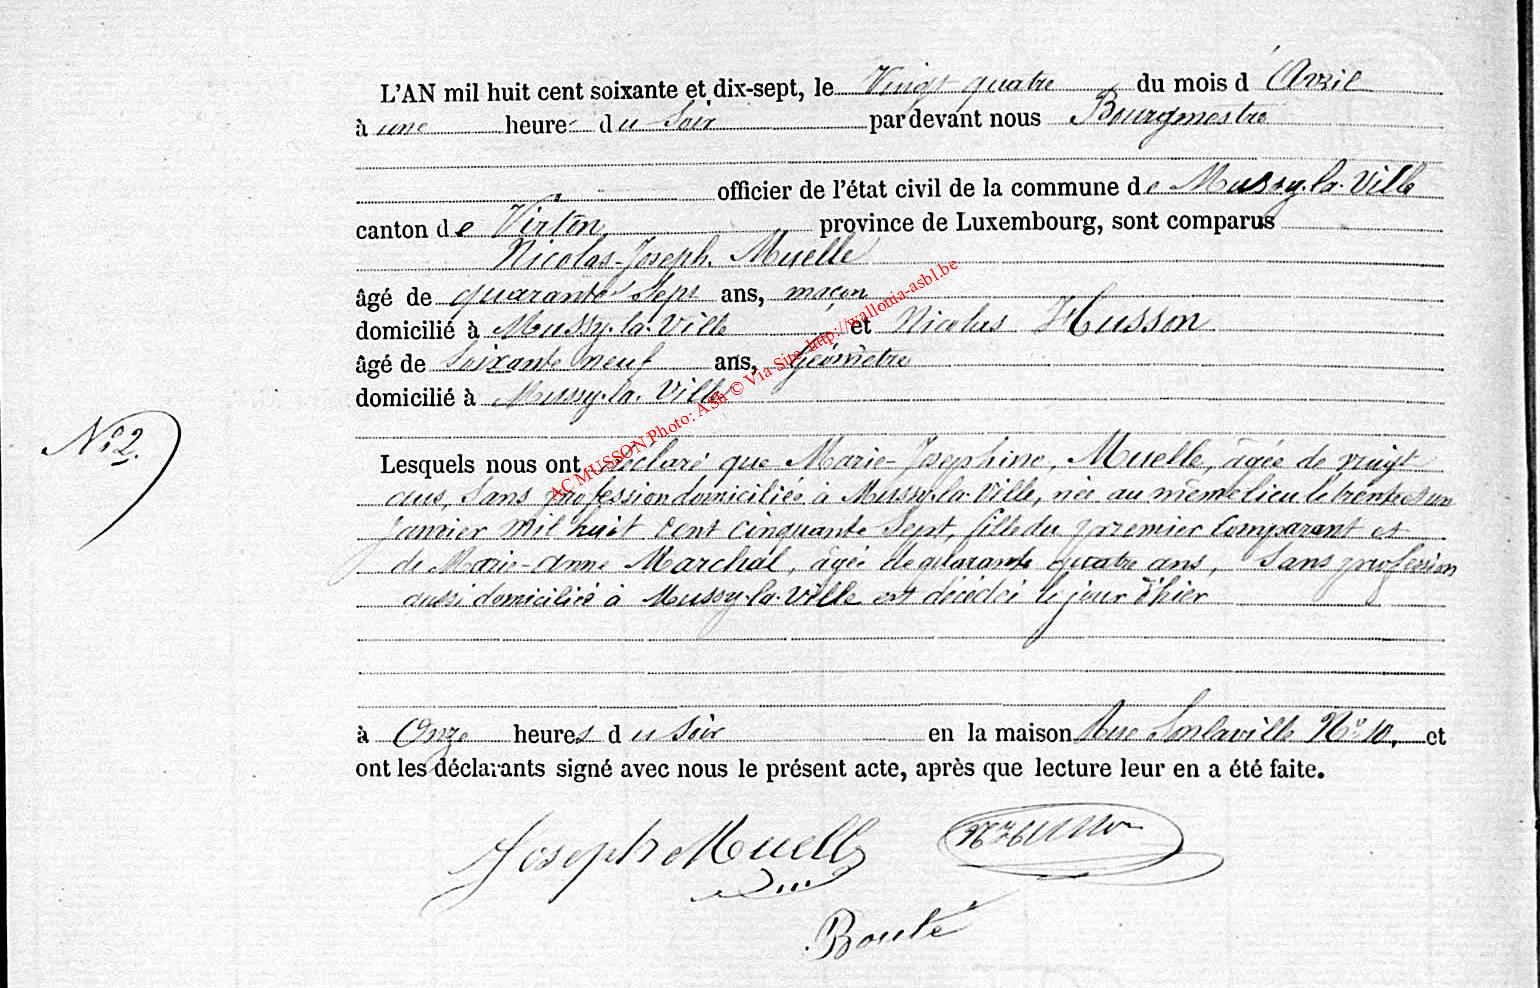 L'AN mil huit cent soixante et dix-sept, le Vingt quatre du mois d'Avril
à une heure du Soir par devant nous Bourgmestre
officier de l'état civil de la commune de Mussy-la-Ville
canton de Virton, province de Luxembourg, sont comparus
Nicolas-Joseph Muelle
âgé de quarante Sept ans, maçon
domicilié à Mussy-la-Ville et Nicolas Husson
âgé de Soixante neuf ans, Géomètre
domicilié à Mussy-la-Ville
N° 2.
Lesquels nous ont déclaré que Marie-Josephine, Muelle, âgée de vingt
ans, Sans profession domiciliée à Mussy-la-Ville, née au même lieu le trente et un
janvier mil huit cent cinquante Sept, fille du premier Comparant et
de Marie-Anne Marchal, âgée de quarante quatre ans, Sans profession
aussi domiciliée à Mussy-la-Ville est décédée le jour d'hier
à Onze heures du Soir en la maison Rue N° 10, et
ont les déclarants signé avec nous le présent acte, après que lecture leur en a été faite.
Joseph Muelle NHusson
Boulé
AC MUSSON Photo: ASh © Via Site http://wallonia-asbl.be